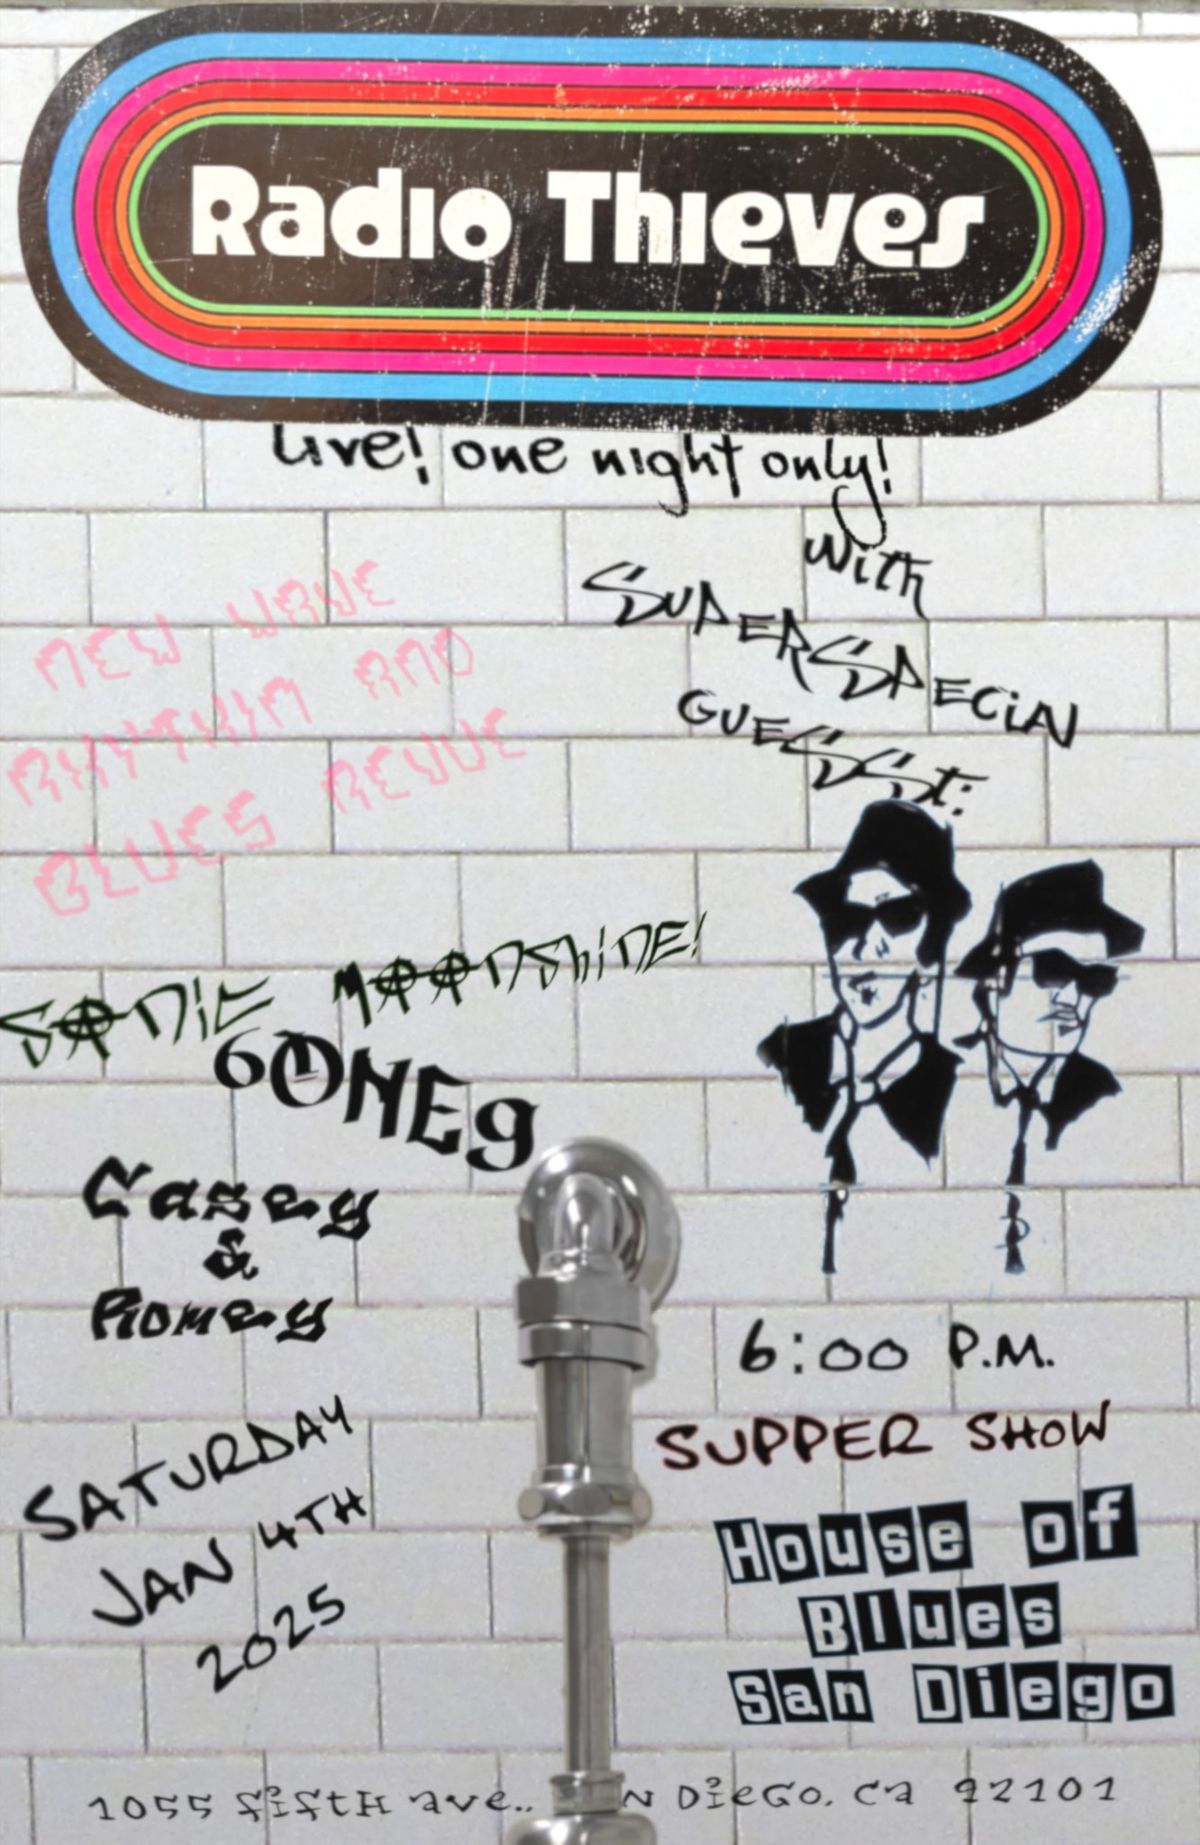 Radio Thieves
Live! one night only!
with
SUPER SPECIAL
GUESSt:
NEW WAVE
RHYTHIM AND
BLUES REVUE
SONIC MOONSHINE!
6ONE9
Casey
&
Romey
6:00 P.M.
SUPPER SHOW
SATURDAY
JAN 4TH
2025
House of
Blues
San Diego
1055 fifth ave.. N Diego, Ca 92101